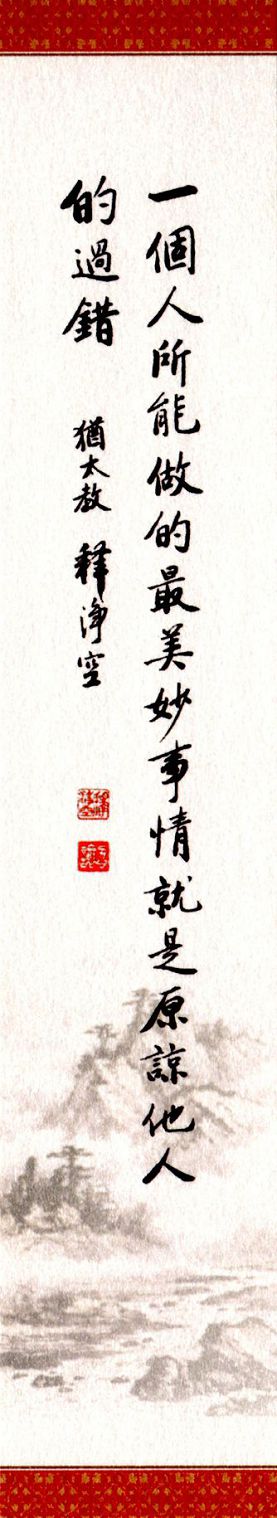 一個人所能做的最美妙事情就是原諒他人
的過錯
猶太教 釋淨空